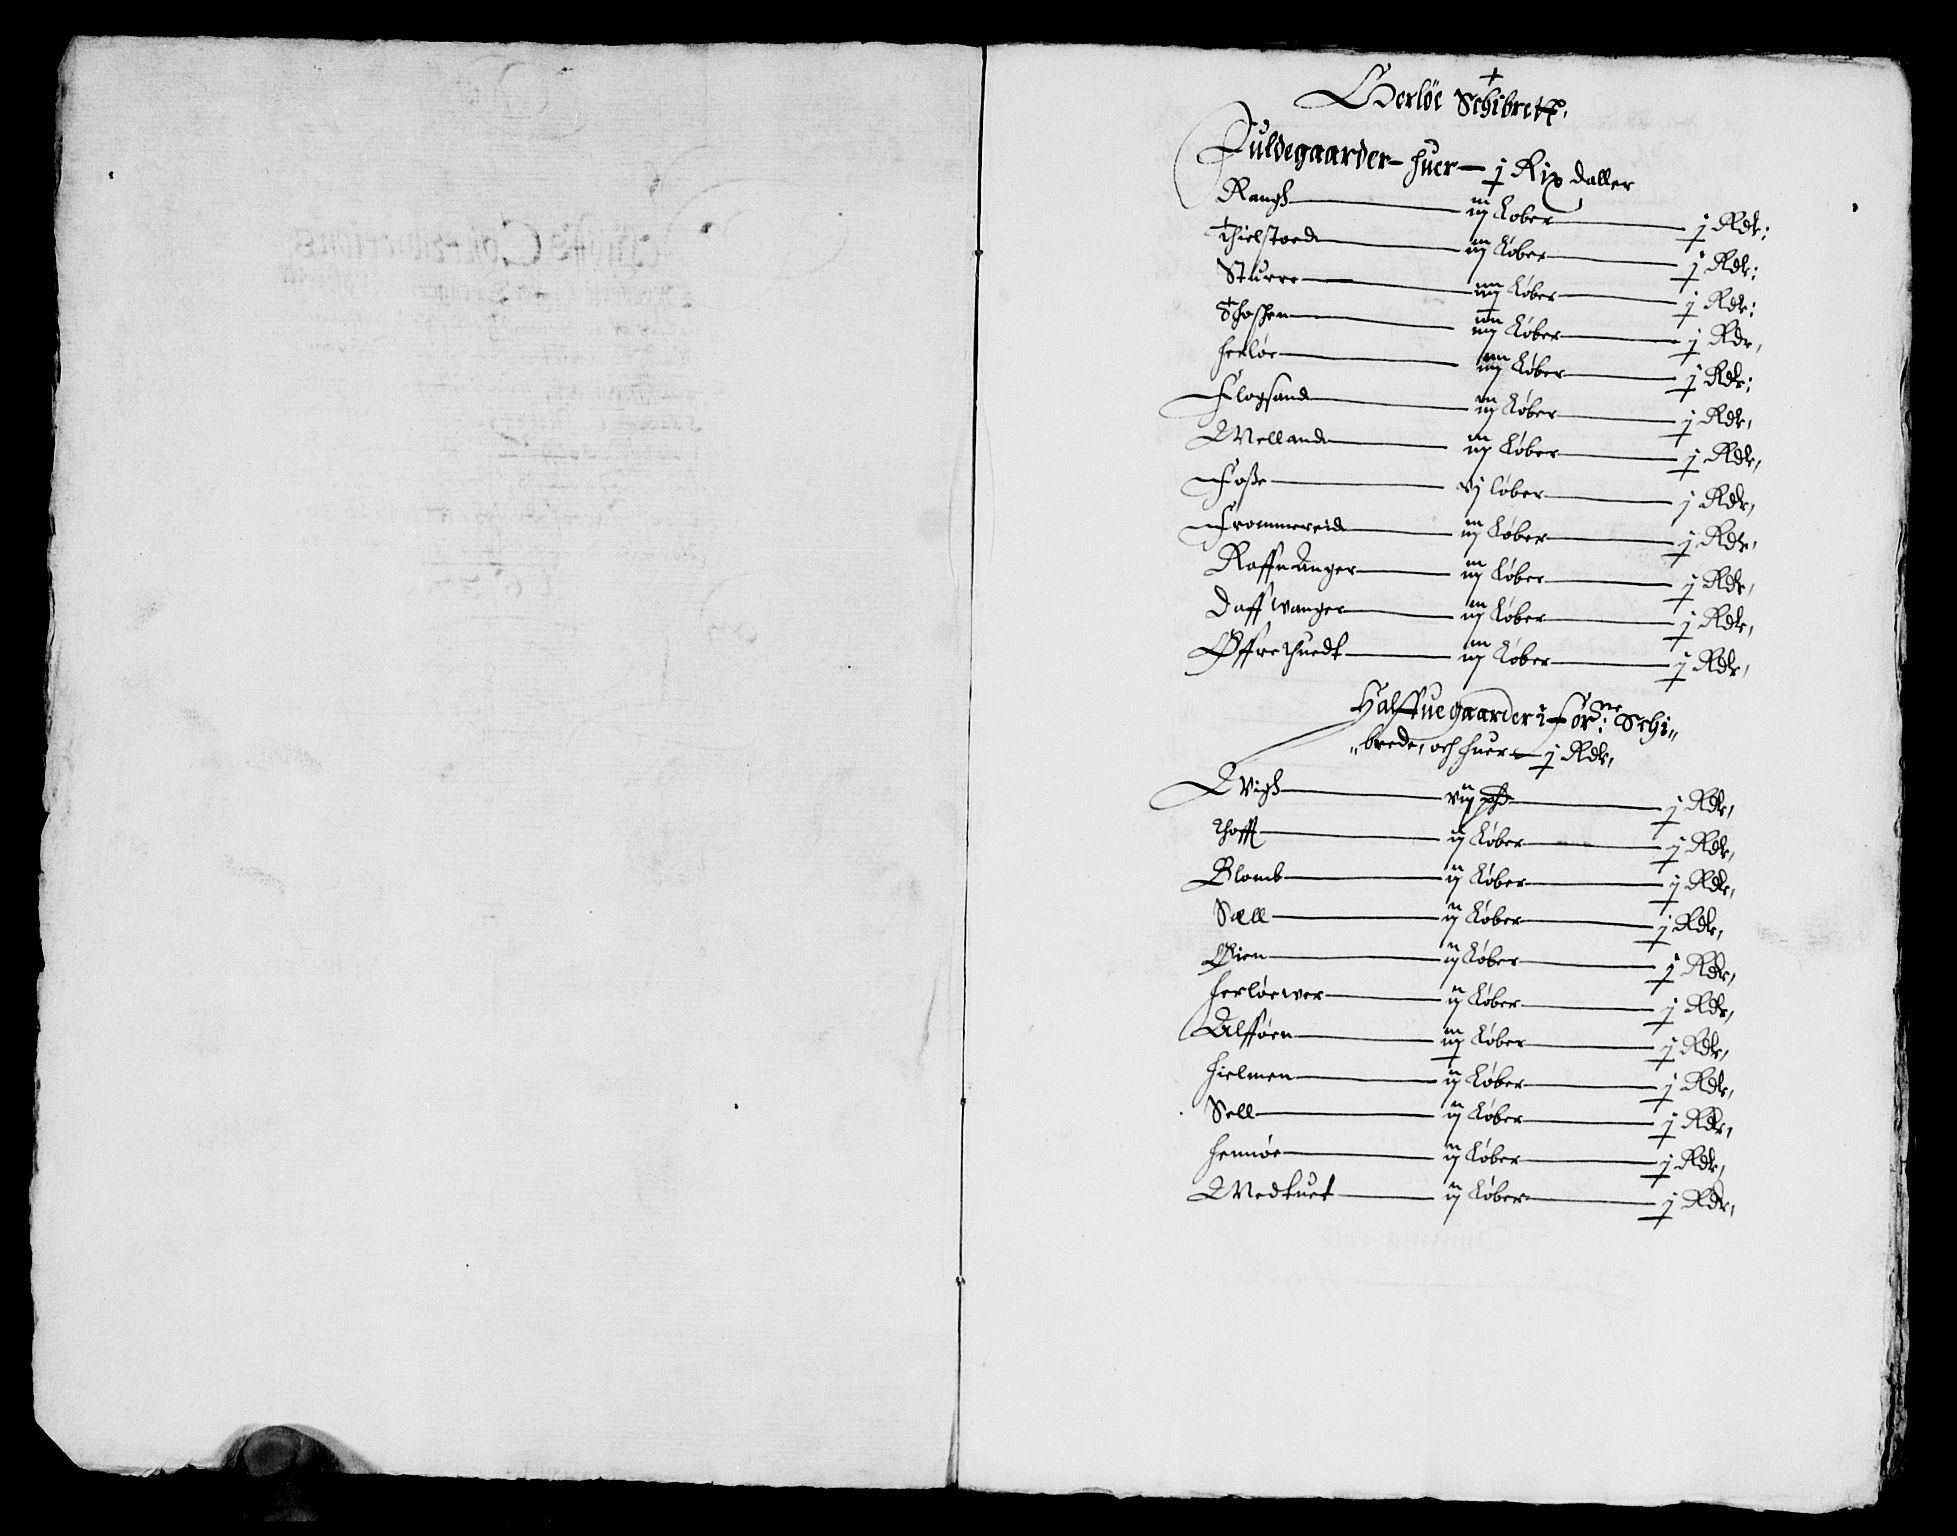 Herlöe Schibrett,
Fuldegaarder huer j Rix daller
Rangh iij Löber j Rdr:
Thielstoed iij Löber j Rdr:
Sturre iiij Löber j Rdr:
Schoßen iiij Löber j Rdr,
herlöe iiij Löber j Rdr:
Flogsand iij Löber j Rdr,
Melland iij Löber j Rdr,
Foße vj löber j Rdr,
Frommereid iij Löber j Rdr,
Raffnanger iij Löber j Rdr,
Daffwanger iij Löber j Rdr,
Øffrethuedt iij Löber j Rdr,
Halffuegaarder i forne: Schi„
„brede, och huer j Rdr,
Vigh viij j Rdr,
Thofft ij Löber j Rdr,
Blomb ij Löber j Rdr,
Sæll ij Löber j Rdr,
Øien ij Löber j Rdr,
herlöewer ij Löber j Rdr,
Alfföen iij Löber j Rdr,
hielmen ij Löber j Rdr,
Sell ij Löber j Rdr,
hennöe ij Löber j Rdr,
Medtuet ij Löber j Rdr,